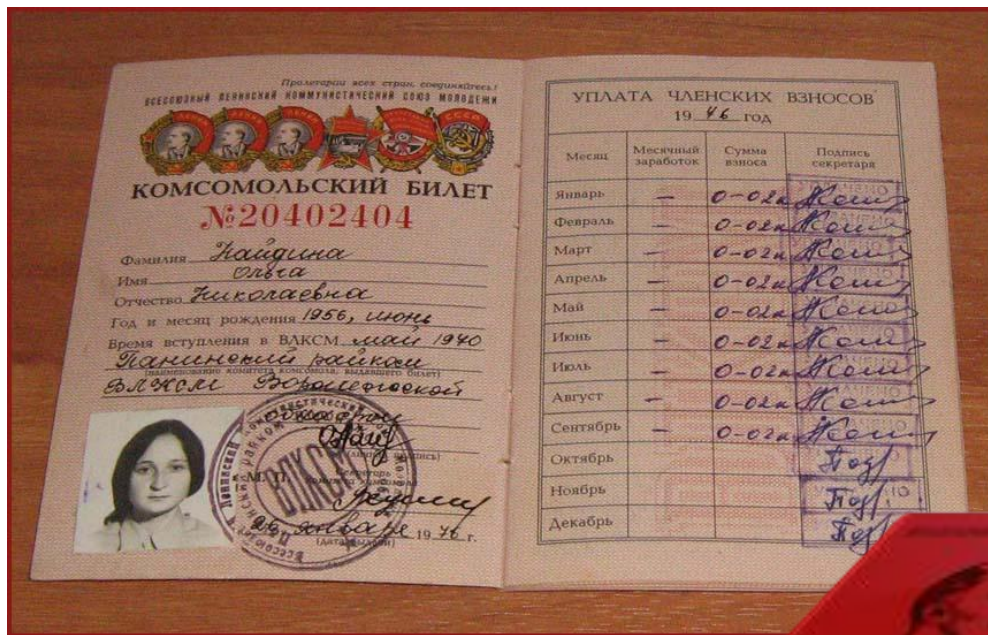 Пролетарии всех стран, соединяйтесь!
ВСЕСОЮЗНЫЙ ЛЕНИНСКИЙ КОММУНИСТИЧЕСКИЙ СОЮЗ МОЛОДЕЖИ
КОМСОМОЛЬСКИЙ БИЛЕТ
№20402404
Фамилия Кайдина
Имя Ольга
Отчество Николаевна
Год и месяц рождения 1956, июнь
Время вступления в ВЛКСМ май 1970
Панинский райком
(наименование комитета комсомола, выдавшего билет)
ВЛКСМ Воронежской
области
(личная подпись)
М. П. Секретарь
комитета комсомола
ВЛКСМ
26 января 1976 г.
(дата выдачи)
УПЛАТА ЧЛЕНСКИХ ВЗНОСОВ
1976 год
Месяц Месячный заработок Сумма взноса Подпись секретаря
Январь — 0-02к
Февраль — 0-02к
Март — 0-02к
Апрель — 0-02к
Май — 0-02к
Июнь — 0-02к
Июль — 0-02к
Август — 0-02к
Сентябрь — 0-02к
Октябрь
Ноябрь
Декабрь